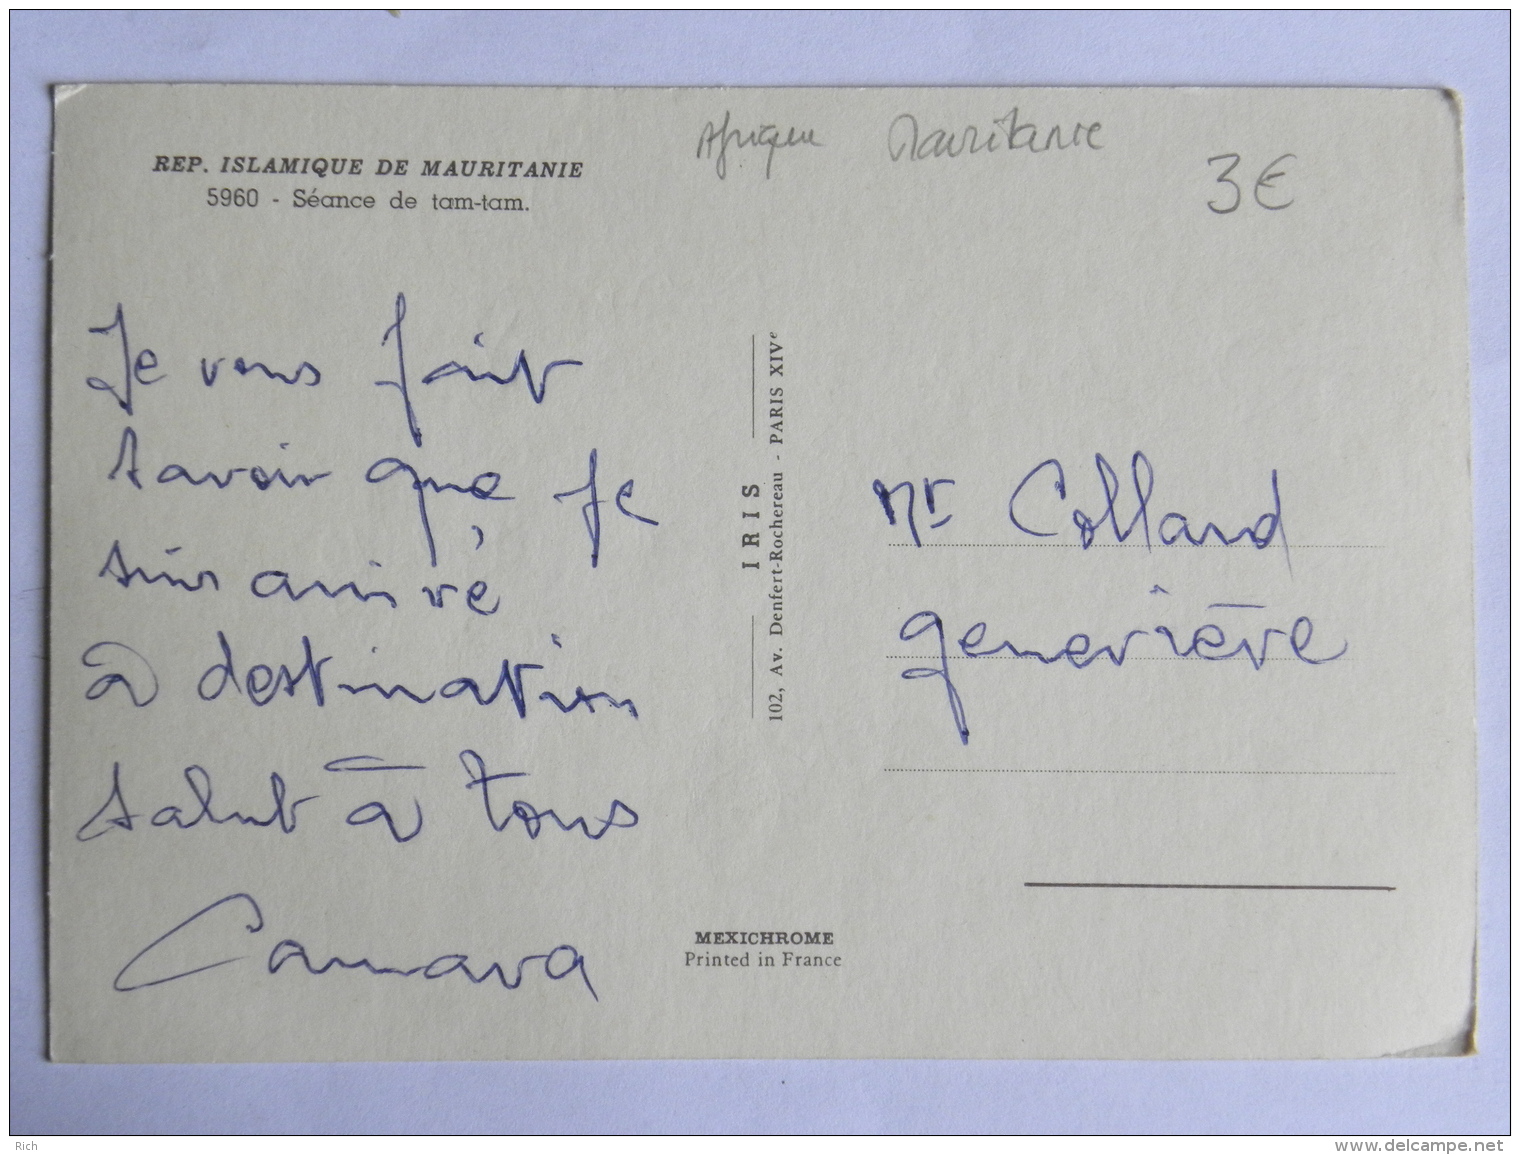 REP. ISLAMIQUE DE MAURITANIE
5960 - Séance de tam-tam.
Afrique Mauritanie
3€
Je vous fait
savoir que je
suis arrivé
à destination
salut à tous
Camara
IRIS
102, Av. Denfert-Rochereau - PARIS XIVe
Mr Collard
geneviève
MEXICHROME
Printed in France
Rich
www.delcampe.net